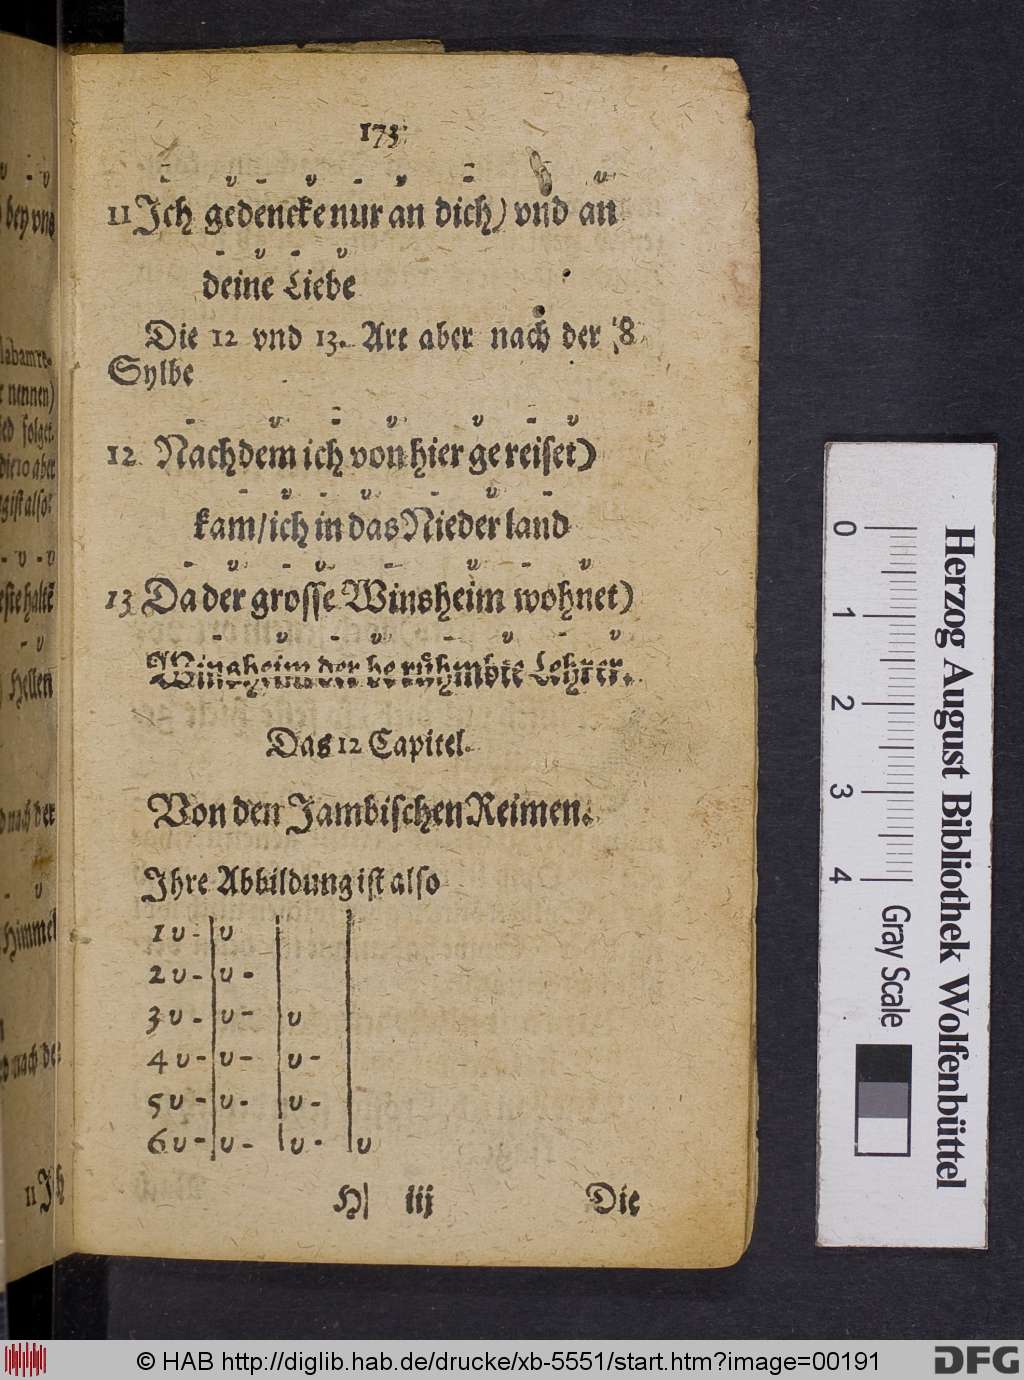 173
11 Ich gedencke nur an dich) vnd an
deine Liebe
Die 12 vnd 13. Art aber nach der 8
Sylbe
12 Nachdem ich von hier ge reiset)
kam/ich in das Nieder land
13 Da der grosse Winsheim wohnet)
Winsheim der be rühmbte Lehrer.
Das 12 Capitel.
Von den Jambischen Reimen.
Ihre Abbildung ist also
1 υ - | υ
2 υ - | υ -
3 υ - | υ - | υ
4 υ - | υ - | υ -
5 υ - | υ - | υ -
6 υ - | υ - | υ - | υ
H iij Die
bey vns
nennen)
folget.
die 10 aber
ist also:
Hellen
nach der
Himmel
nach der
11 Ich
0 1 2 3 4 Gray Scale
Herzog August Bibliothek Wolfenbüttel
© HAB http://diglib.hab.de/drucke/xb-5551/start.htm?image=00191
DFG